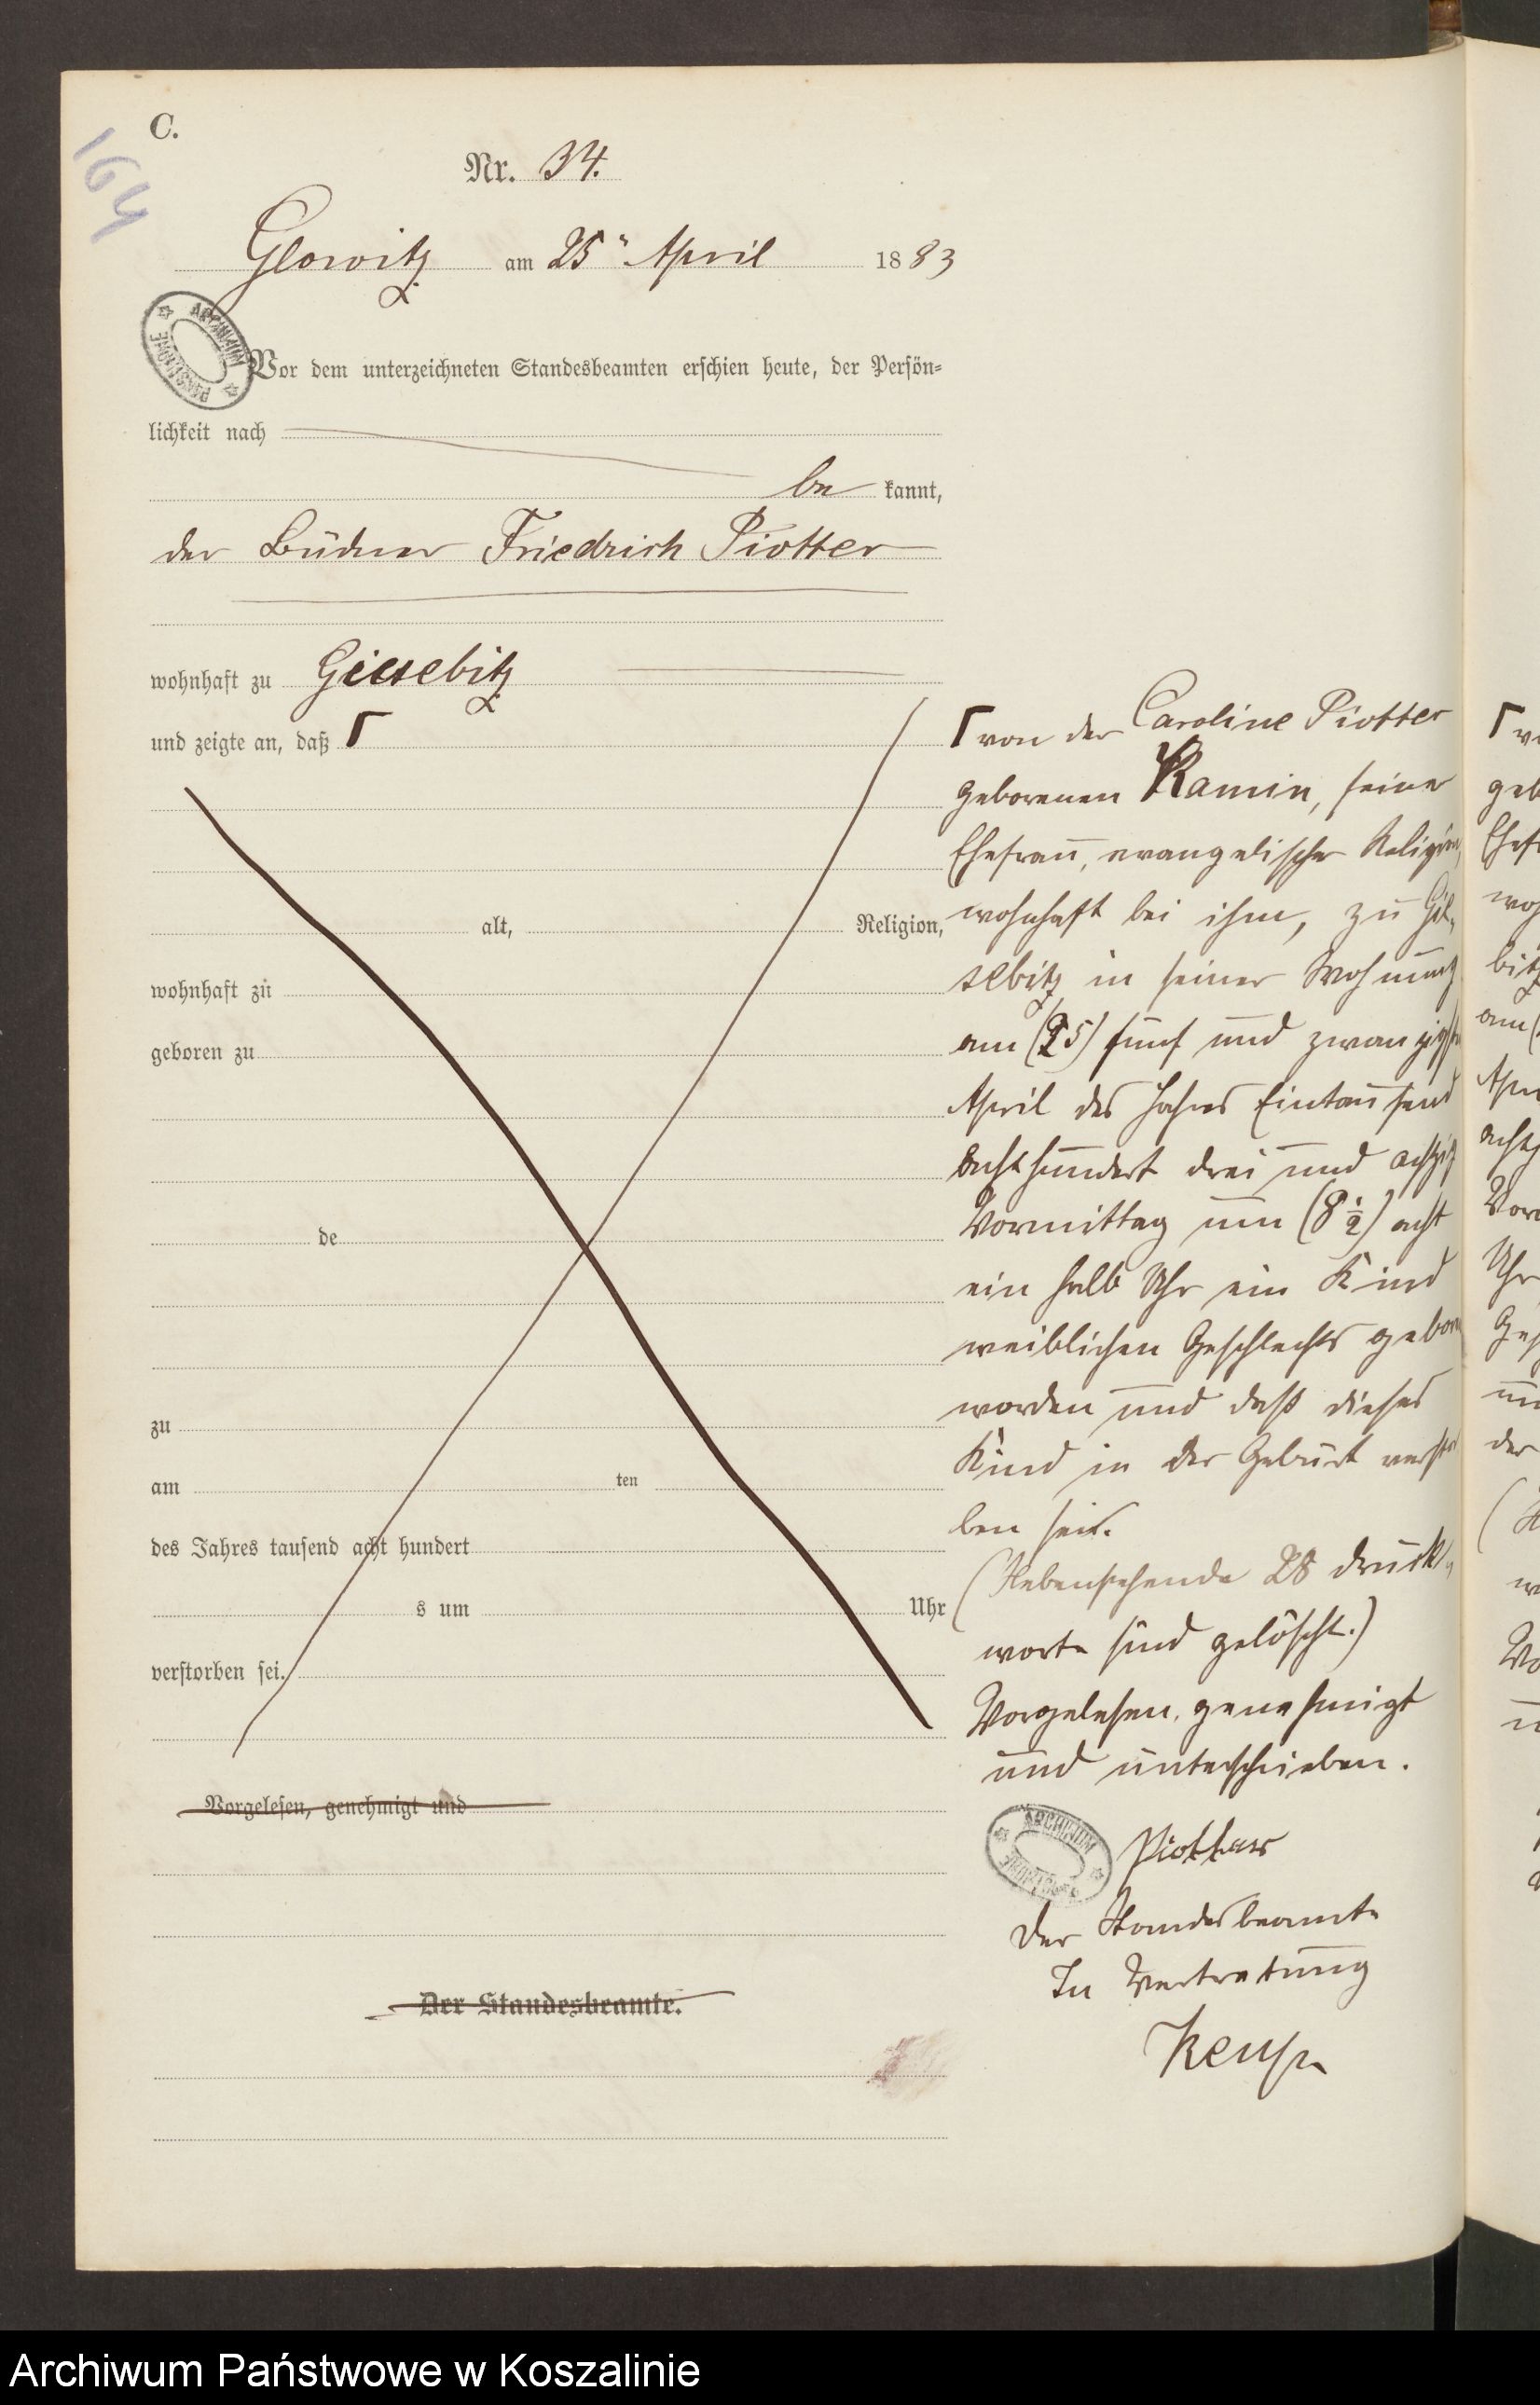 C.
164
Nr. 34.
Glowitz am 25ten April 1883
ARCHIWUM PAŃSTWOWE
Vor dem unterzeichneten Standesbeamten erschien heute, der Persön=
lichkeit nach
be kannt,
der Büdner Friedrich Piotter
wohnhaft zu Giesebitz
und zeigte an, daß Γ
alt, Religion,
wohnhaft zu
geboren zu
de
zu
am ten
des Jahres tausend acht hundert
s um Uhr
verstorben sei.
Vorgelesen, genehmigt und
Der Standesbeamte.
Γ von der Caroline Piotter
geborenen Ramin, seiner
Ehefrau, evangelischer Religion,
wohnhaft bei ihm, zu Gie-
sebitz in seiner Wohnung
am (25) fünf und zwanzigsten
April des Jahres Eintausend
achthundert drei und achtzig
Vormittag um (8 1/2) acht
ein halb Uhr ein Kind
weiblichen Geschlechts geboren
worden und daß dieses
Kind in der Geburt verstor
ben sei.
(Nebenstehende 28 Druck-
worte sind gelöscht.)
Vorgelesen, genehmigt
und unterschrieben.
ARCHIWUM PAŃSTWOWE
Piotter
Der Standesbeamte
In Vertretung
Archiwum Państwowe w Koszalinie